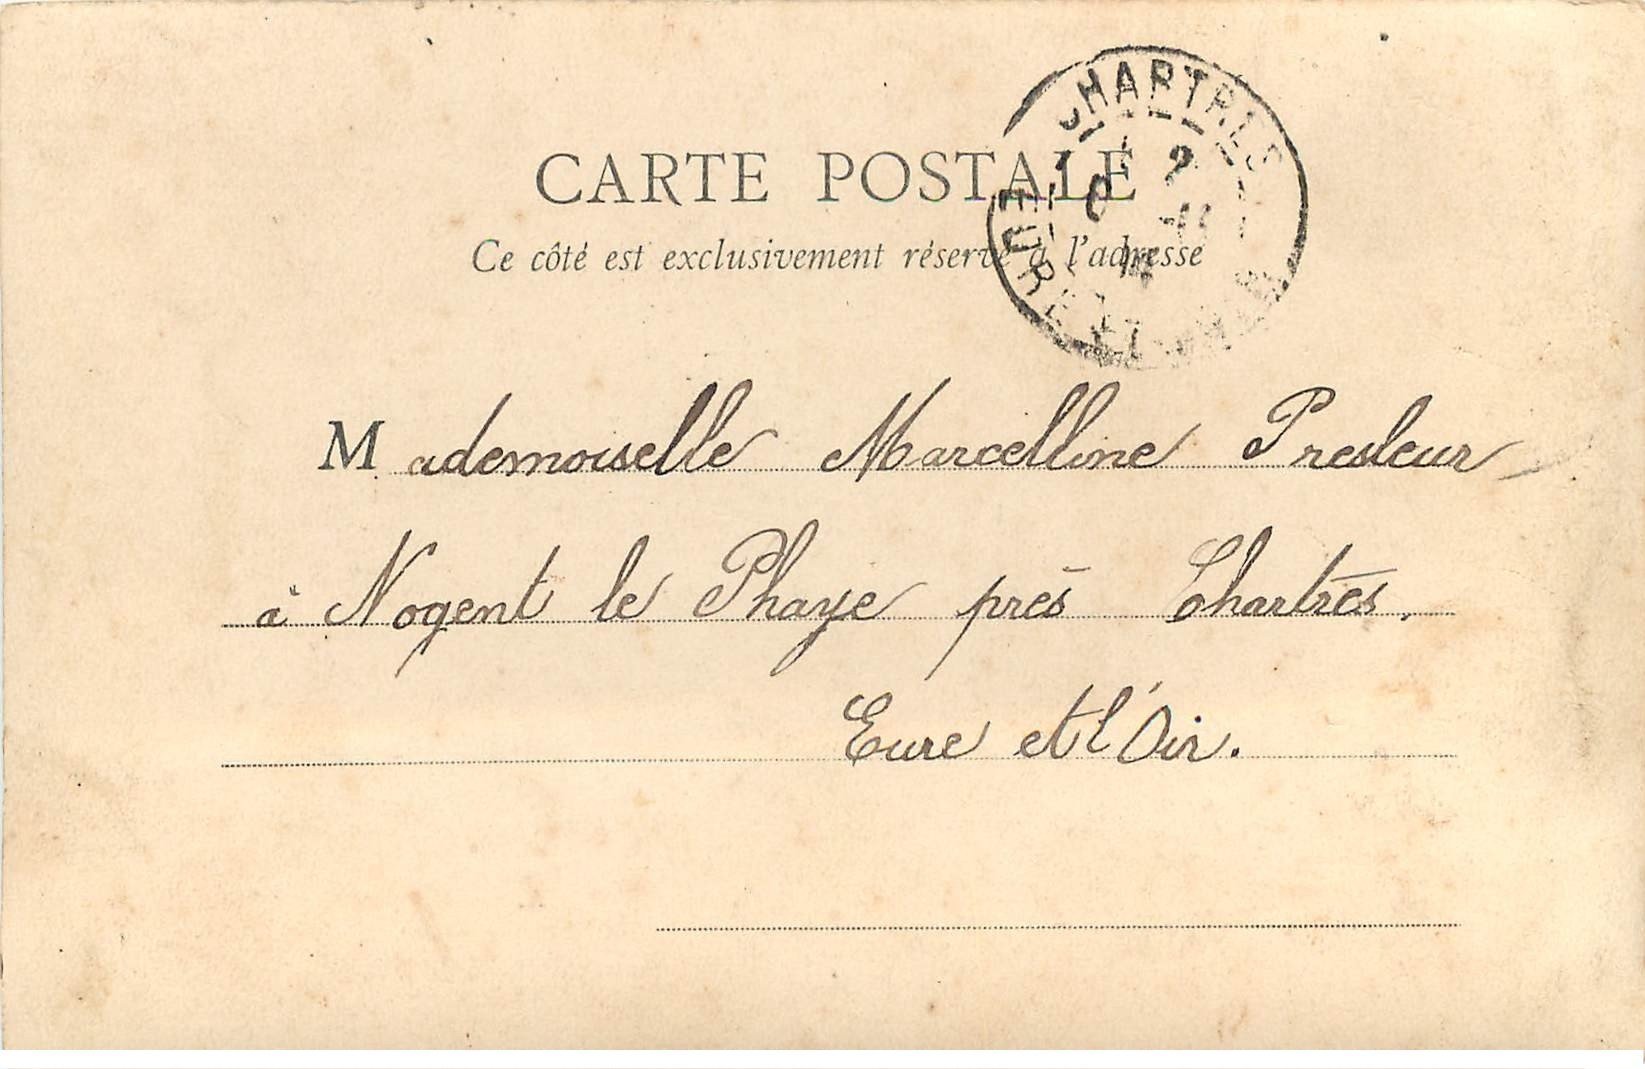 CARTE POSTALE
Ce côté est exclusivement réservé à l'adresse
CHARTRES
EURE ET
Mademoiselle Marcelline Presleur
à Nogent le Phaye près Chartrès.
Eure et l'Oir.